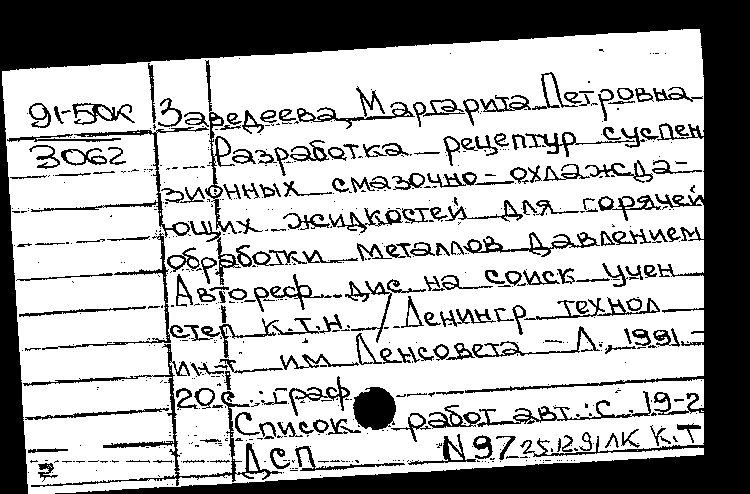 91-50к Заведеева, Маргарита Петровна
3062 Разработка рецептур суспен
зионных смазочно-охлажда-
ющих жидкостей для горячей
обработки металлов давлением
Автореф. дис. на соиск учен
степ к.т.н. / Ленингр. технол
ин-т им Ленсовета - Л., 1991. -
20 с. : граф
Список работ авт.: с. 19-2
ДСП N97 25.12.91 ЛК К.Т